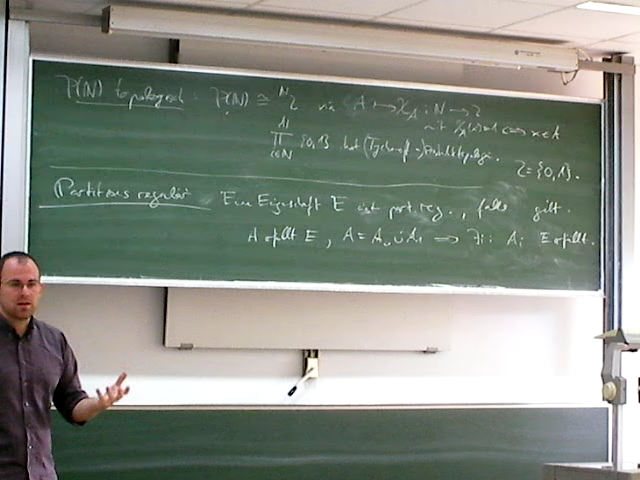 P(N) topologisch: P(N) ≅ ᴺ2 via A ↦ χ_A : N → 2
mit χ_A(n)=1 ⟺ n∈A
∏_{i∈N} {0,1} hat (Tychonoff-)Produkttopologie. 2={0,1}.
Partitionsregulär Eine Eigenschaft E ist part. reg., falls gilt:
A erfüllt E, A = A₀ ∪̇ A₁ ⟹ ∃i: Aᵢ E erfüllt.